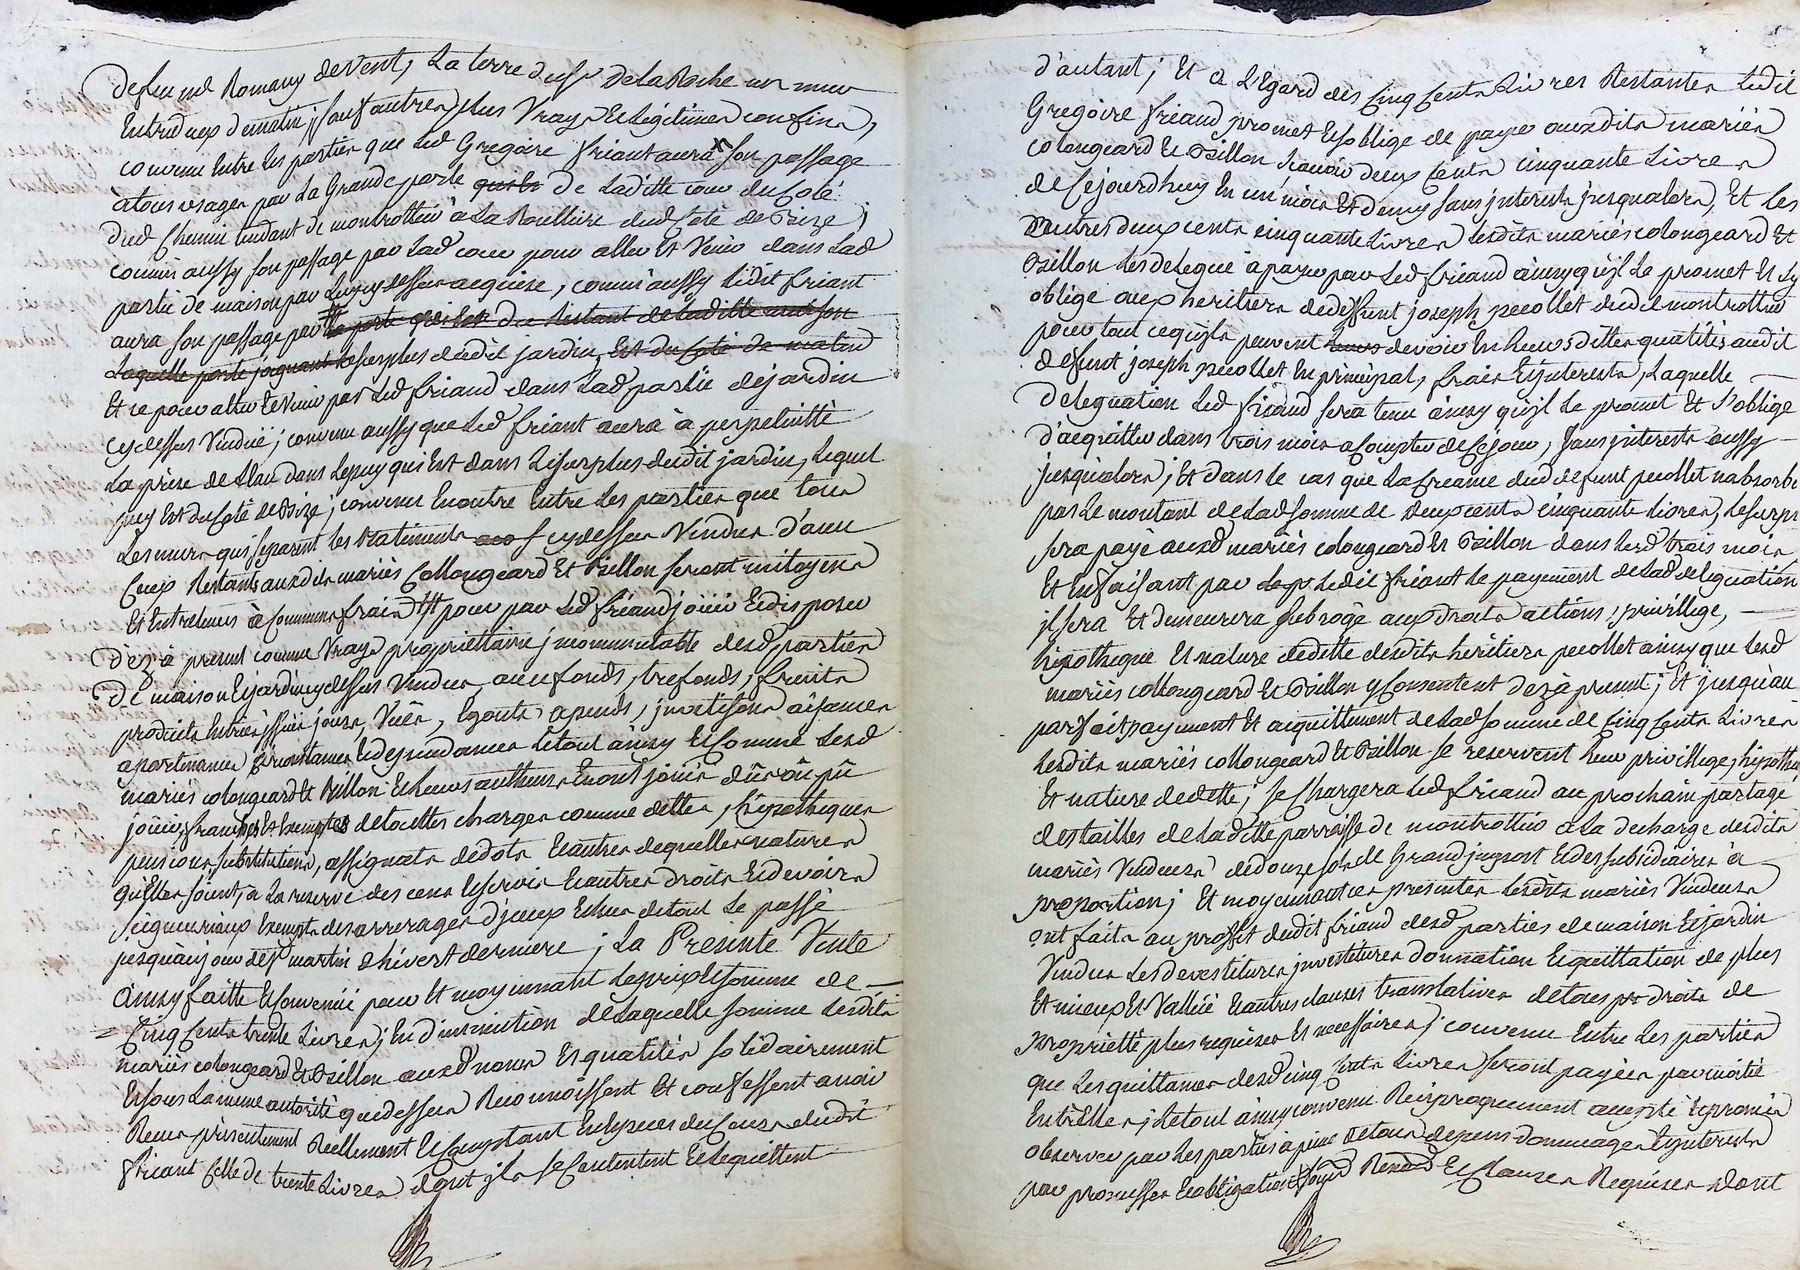 defeu md Romany de vent, La terre dusr De La Roche un mur
Entredeux de matin j sauf autres plus Vrays et Legitimes confins,
convenu Entre les parties que Led Gregoire friant aura son passage
à tous usages par La Grande porte de Laditte cour du Coté
dud Chemin tendant de montrottier à La Roulliere dud Coté de Bize ;
comm' aussy son passage par Lad cour pour aller Et Venir dans Lad
partie de maison par Luy cy dessus acquise, comm' aussy Ledit friant
aura son passage par la porte qui est du restant de laditte maison
Laquelle porte joignant le surplus dudit jardin, Et du Coté de matin
Et ce pour aller Et Venir par Led friand dans Lad partie de jardin
cy dessus Vendue ; convenu aussy que Led friant aura à perpetuitté
La prise de L'eau dans Le puy qui Est dans Le surplus dudit jardin, Lequel
puy Est du Coté de Bize ; convenu En outre Entre Les parties que tous
Les murs qui separent les Batiments cy dessus Vendus d'avec
Ceux Restants auxdits mariés Collongeard Et Bsillon seront mitoyens
Et Entretenus à Communs frais pour par Led friand joüir Et disposer
dez à present comme Vrays propriettaire jncommutable desd parties
de maison Et jardin cy dessus Vendus, avec fonds, trefonds, fruits
produits Entrées, issües, jours, Vuës, Egouts, apends, jnvetisons aisances
apartenances Circonstances Et dependances Le tout ainsy Et Comme Lesd
mariés colongeard Et Bsillon Et Leurs autheurs En ont joüis dû où pû
joüir, franches Et Exemptes de touttes charges comme dettes, hÿpotheques
pensions, substitutions, assignats de dots Et autres de quelles natures
qu'Elles soient, a La reserve des cens Et servis Et autres droits Et devoirs
seigneuriaux Exempts des arrerages d'jceux Et Lies de tout Le passé
jusqu'au jour de St martin d'hivert derniere ; La Presente Vente
ainsy faitte Et Convenüe pour Et moyennant Le prix Et somme de
Cinq Cents trente Livres ; En diminution de Laquelle somme Lesdits
mariés colongeard Et Bsillon auxd noms Et qualités solidairement
Et sous La meme autorité que dessus Reconnoissent Et confessent avoir
Recu presentement Reellement Et Comptant En Especes du Cours dudit
friant Celle de trente Livres dont jls se Contentent Et Le quittent
d'autant ; Et a L'Egard des Cinq Cents Livres Restantes Ledit
Gregoire friand promet Et soblige de payer auxdits mariés
colongeard Et Bsillon scavoir deux Cents cinquante Livres
de Cejourdhuy En un mois Et demy sans jnterests jusqu'alors, Et Les
autres deux cents cinquante Livres Lesdits mariés colongeard Et
Bsillon Les deleque à payer par Led friand ainsy qu'jl Le promet Et s'y
oblige aux heritiers dudeffunt joseph pecollet dudit montrottier
pour tout ce qu'jls peuvent devoir En Leursdittes qualités audit
defunt joseph pecollet En principal, frais Et jnterests, Laquelle
deleguation Led friand sera tenu ainsy qu'jl Le promet Et s'oblige
d'acquitter dans trois mois a Compter de Ce jour, sans jnterests aussy
jusqu'alors ; Et dans le cas que La creance dud defunt pecollet n'absorbe
pas Le montant de Lad somme de deux cents cinquante Livres, Le surp
sera payé auxd mariés colongeard Et Bsillon dans Lesd trois mois
Et En faisant par Ledit friant Le payement de Lad deleguation
jl sera Et demeurera subrogé aux droits actions, privillege,
hipotheque Et nature de dette desdits heritiers pecollet ainsy que Lesd
mariés collongeard Et Bsillon y Consentent dez à present ; Et jusqu'au
parfait payement Et acquittement de Lad somme de Cinq Cents Livres
Lesdits mariés collongeard Et Bsillon se reservent Leur privillege, hipothe
Et nature de dette ; se Chargera Led friand au prochain partage
des tailles de Laditte parroisse de montrottier a La decharge desdits
mariés Vendeurs de douze sols de Grand jmpost Et des subsidiaires à
proportion ; Et moyennant ces presentes Lesdits mariés Vendeurs
ont faits au proffit dudit friand desd parties de maison Et jardin
Vendus Les devestitures jnvestitures donnation Et quittation de plus
Et mieux Et Vallüe Et autres clauses translatives de tous droits de
proprietté plus requises Et necessaires ; convenu Entre Les parties
que Les quittances desd cinq Cents Livres seront payées par moitié
Entr'Elles ; Le tout ainsy convenu Reciproquement accepté Et promis
observer par Les parties a peine de tous depens dommages Et jnterests
par promesses Et obligations Renond Et Clauses Requises Dont